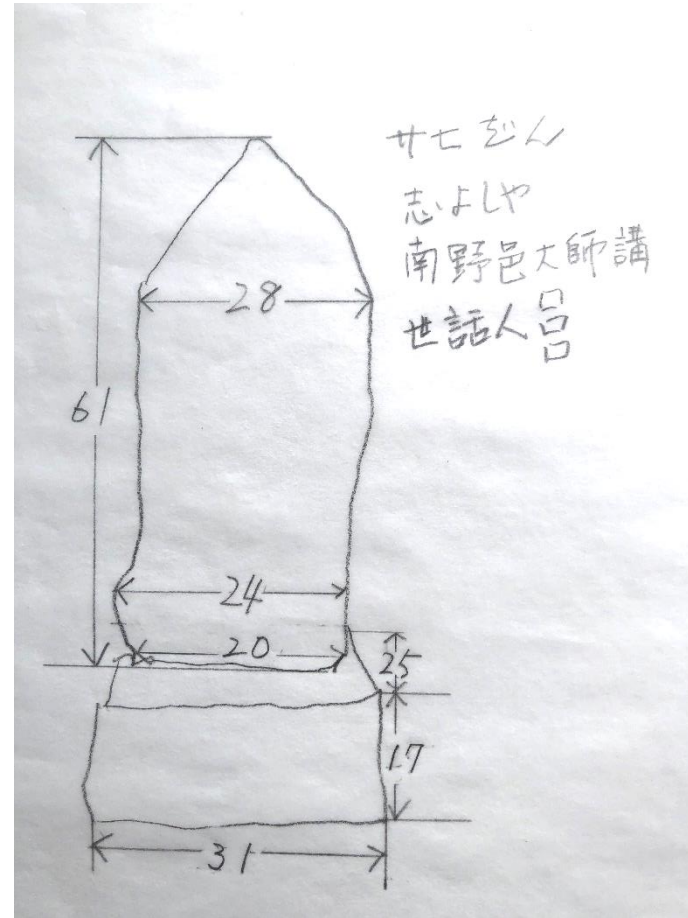 廿七ばん
志よしや
南野邑大師講
世話人□□□
28
61
24
20
25
17
31